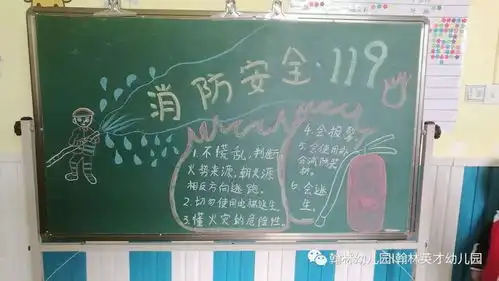 消防安全·119
1.不慌乱,判断
火势来源,朝火源
相反方向逃跑。
2.切勿使用电梯逃生
3.懂火灾的危险性。
4.会报警
5.会使用
合消防器
材。
6.会逃
生。
翰林幼儿园|翰林英才幼儿园